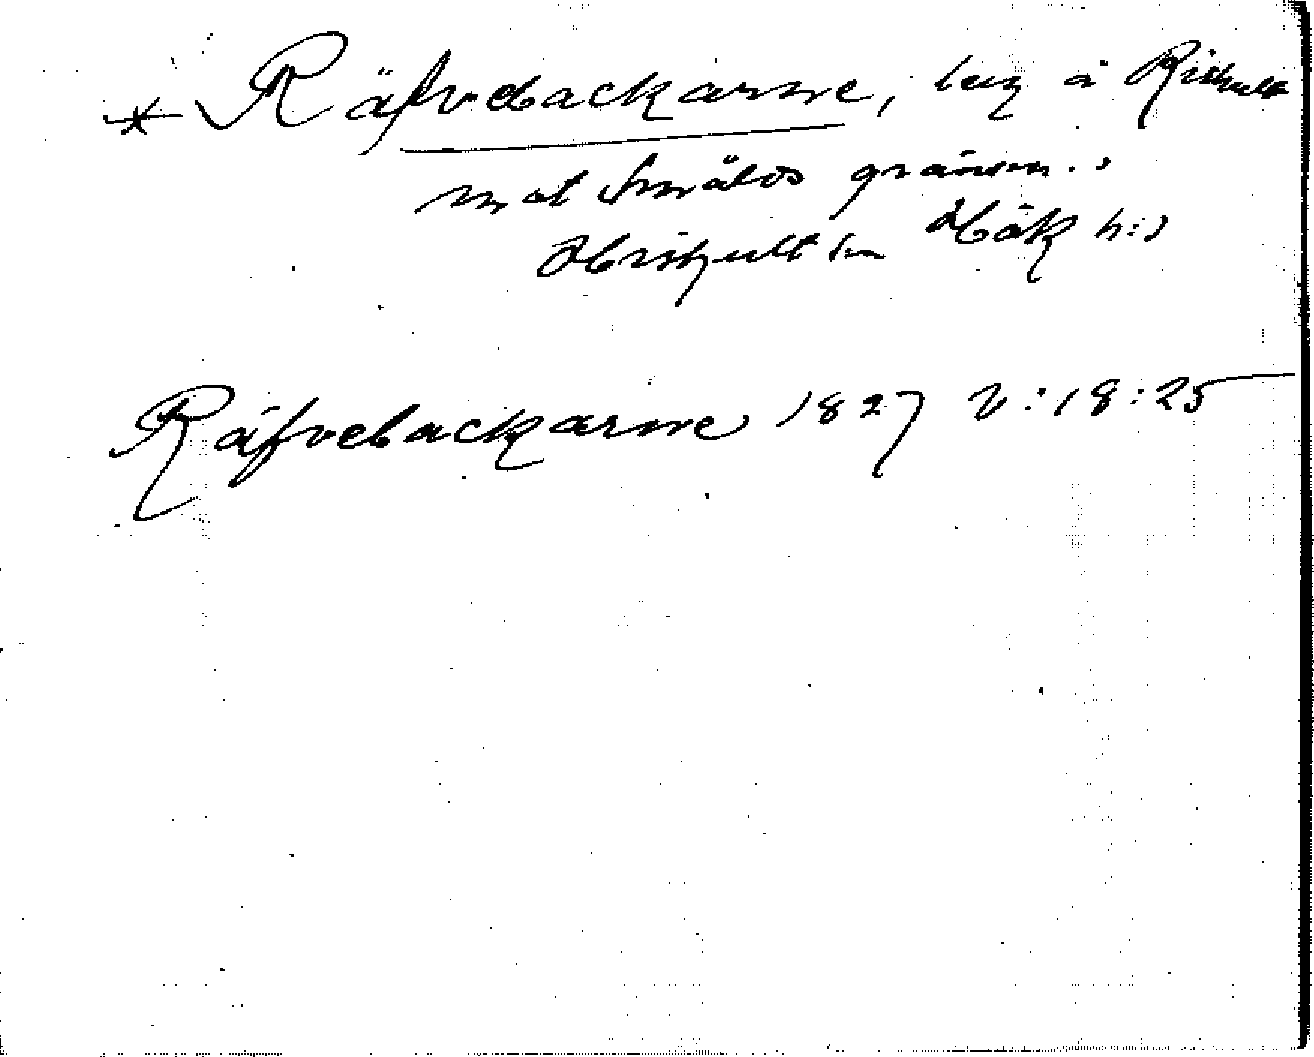 * Räfvebackarne, å Rishult
mot Smålds gränsen.
Hishult sn Hök h:d
Räfvebackarne 1827 V:18:25